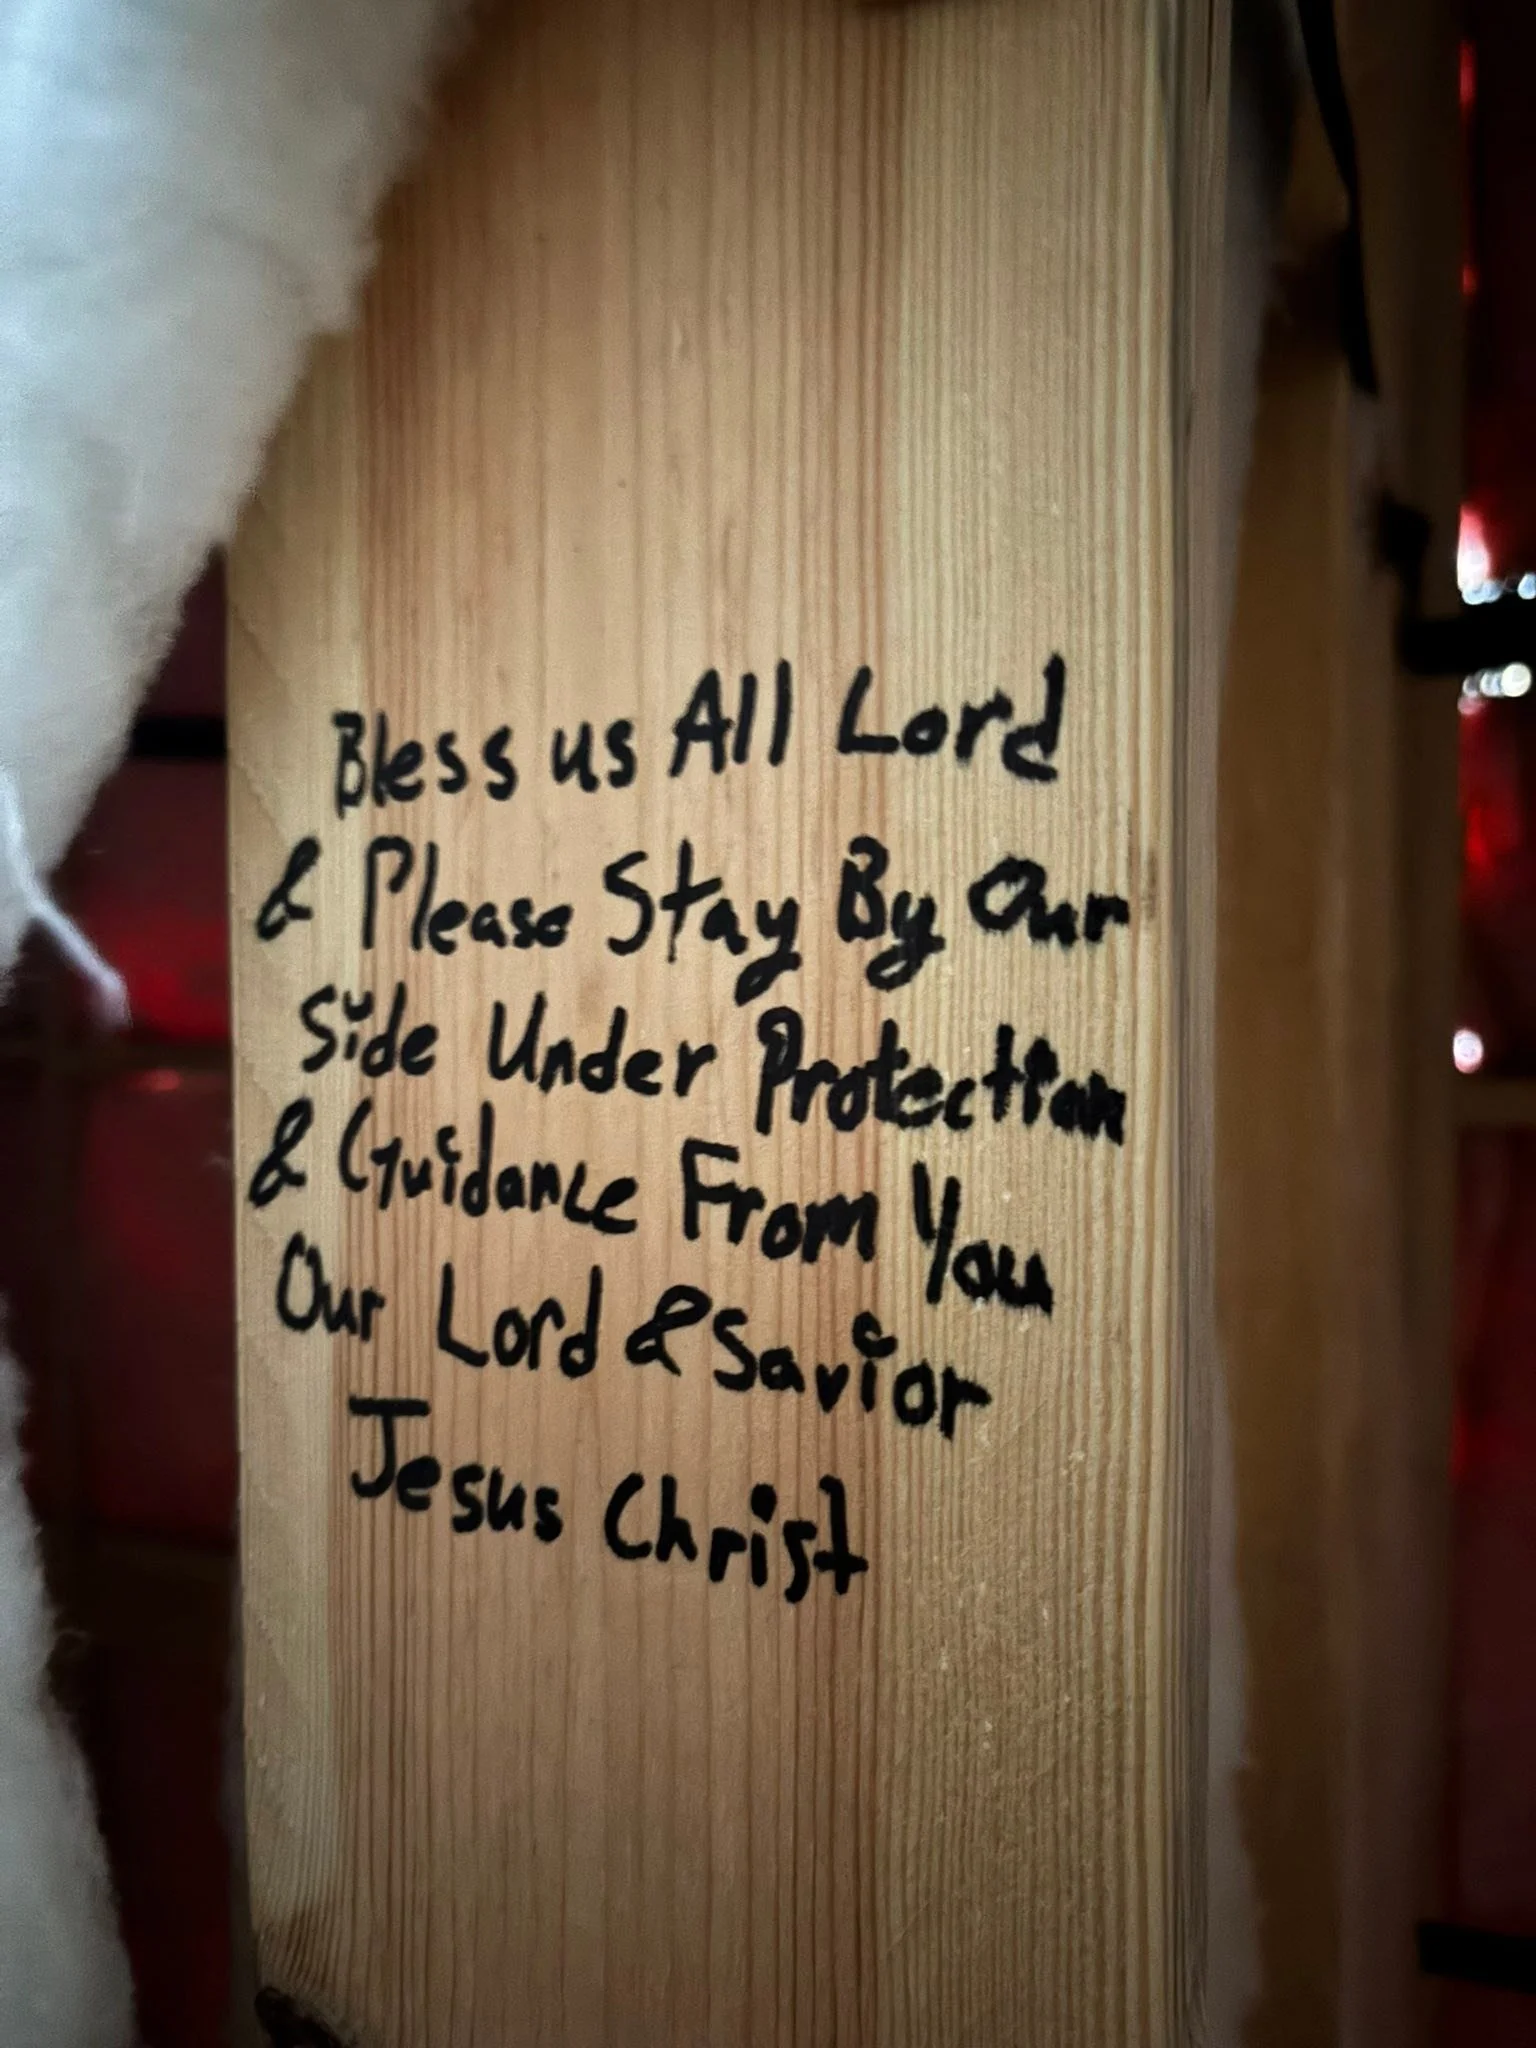 Bless us All Lord
& Please Stay By Our
Side Under Protection
& Guidance From You
Our Lord & Savior
Jesus Christ